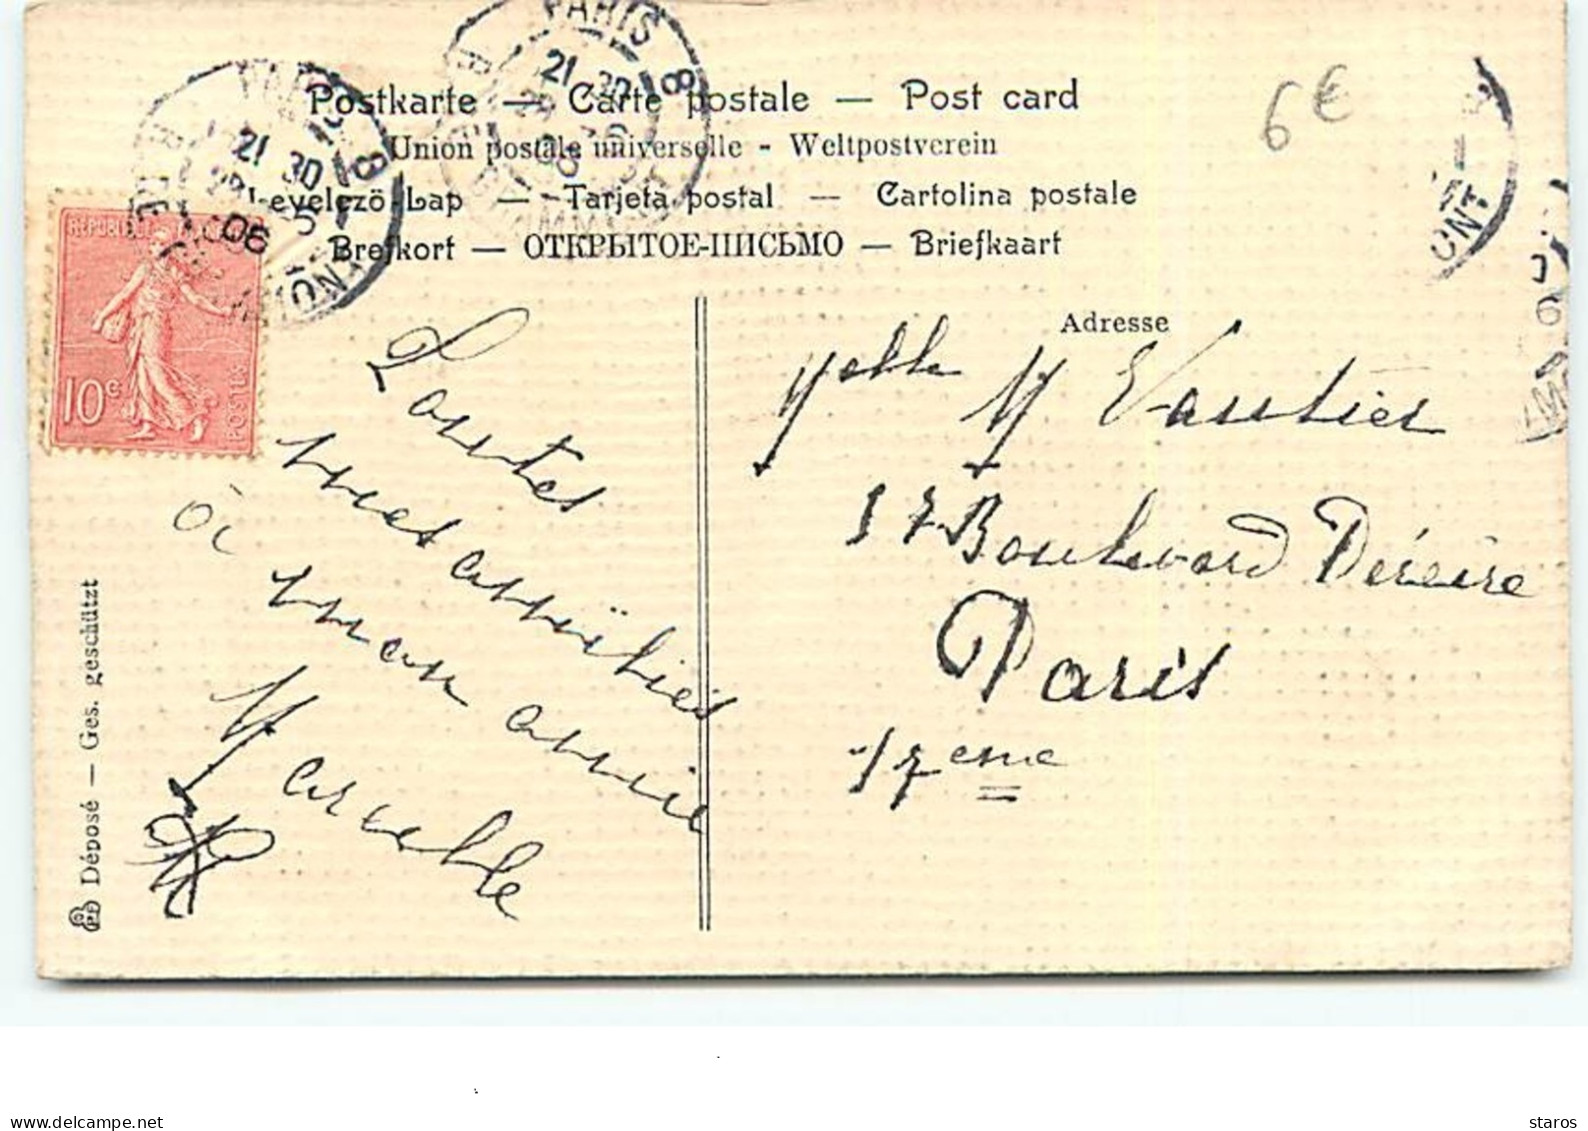 Postkarte — Carte postale — Post card
Union postale universelle - Weltpostverein
Levelező-Lap — Tarjeta postal — Cartolina postale
Brefkort — ОТКРЫТОЕ-ПИСЬМО — Briefkaart
6€
PARIS 8
21 30
PARIS 8
21 30
06
REPUBLIQUE
10c
POSTES
Adresse
Melle M Vautier
37 Boulevard Péreire
Paris
17eme
Toutes
mes amitiés
à mon amie
Marcelle
Déposé — Ges. geschützt
www.delcampe.net
staros